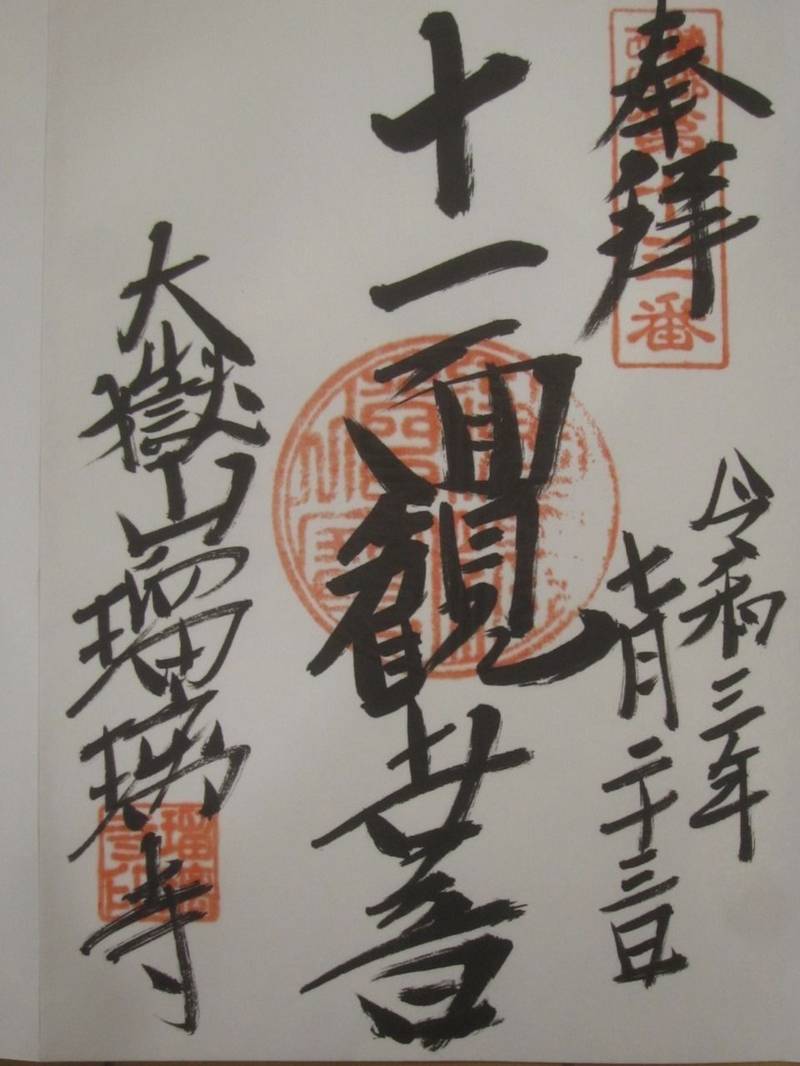 奉拝
令和三年
七月二十三日
十一面観世音
大嶽山瑠璃寺
瑠璃寺印